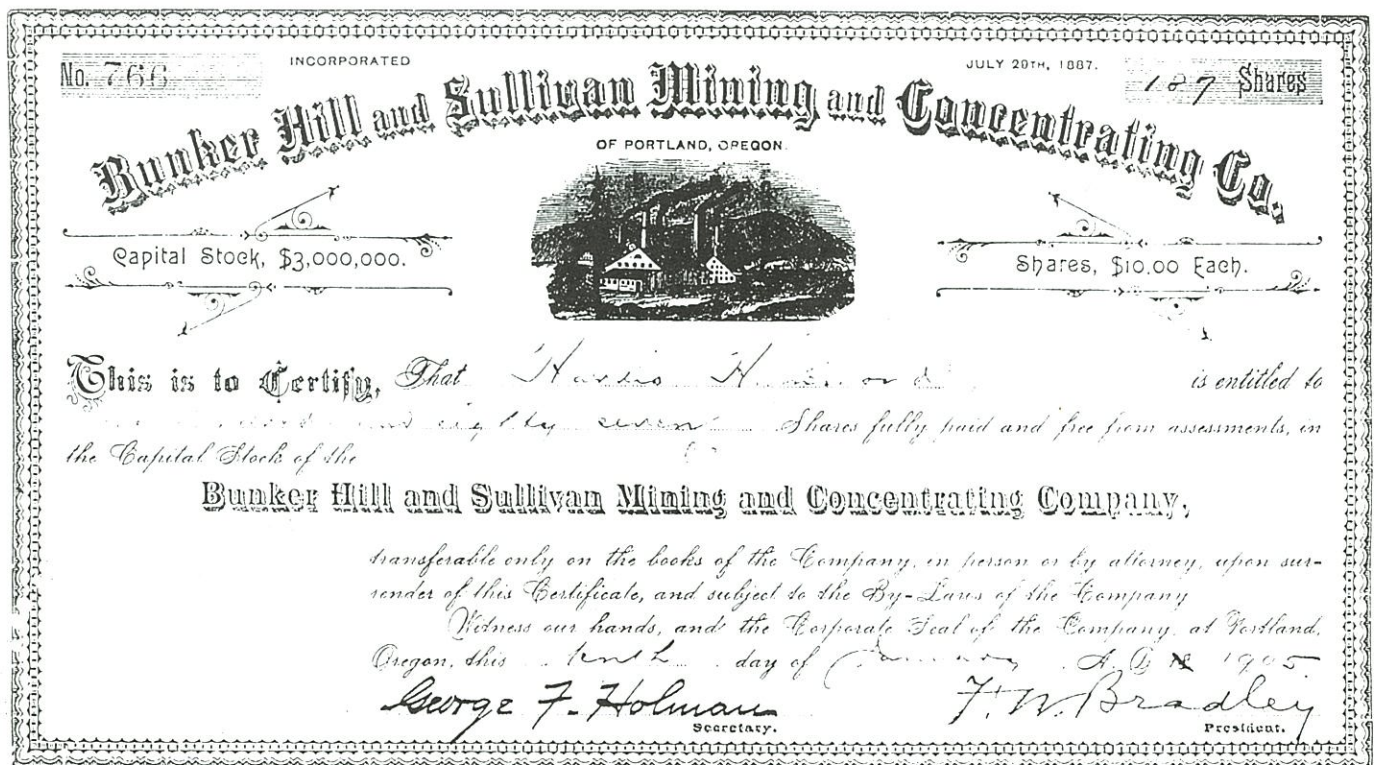 No. 766
INCORPORATED
JULY 29TH, 1887.
187 Shares
Bunker Hill and Sullivan Mining and Concentrating Co.
OF PORTLAND, OREGON.
Capital Stock, $3,000,000.
Shares, $10.00 Each.
This is to Certify, That is entitled to
and eighty seven Shares fully paid and free from assessments, in
the Capital Stock of the
Bunker Hill and Sullivan Mining and Concentrating Company,
transferable only on the books of the Company, in person or by attorney, upon sur-
render of this Certificate, and subject to the By-Laws of the Company
Witness our hands, and the Corporate Seal of the Company, at Portland,
Oregon, this tenth day of January A.D. 1905
George F. Holman
Secretary.
F. W. Bradley
President.